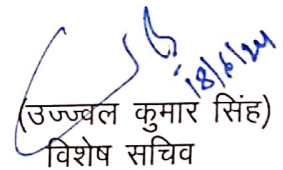 18/6/24
(उज्ज्वल कुमार सिंह)
विशेष सचिव